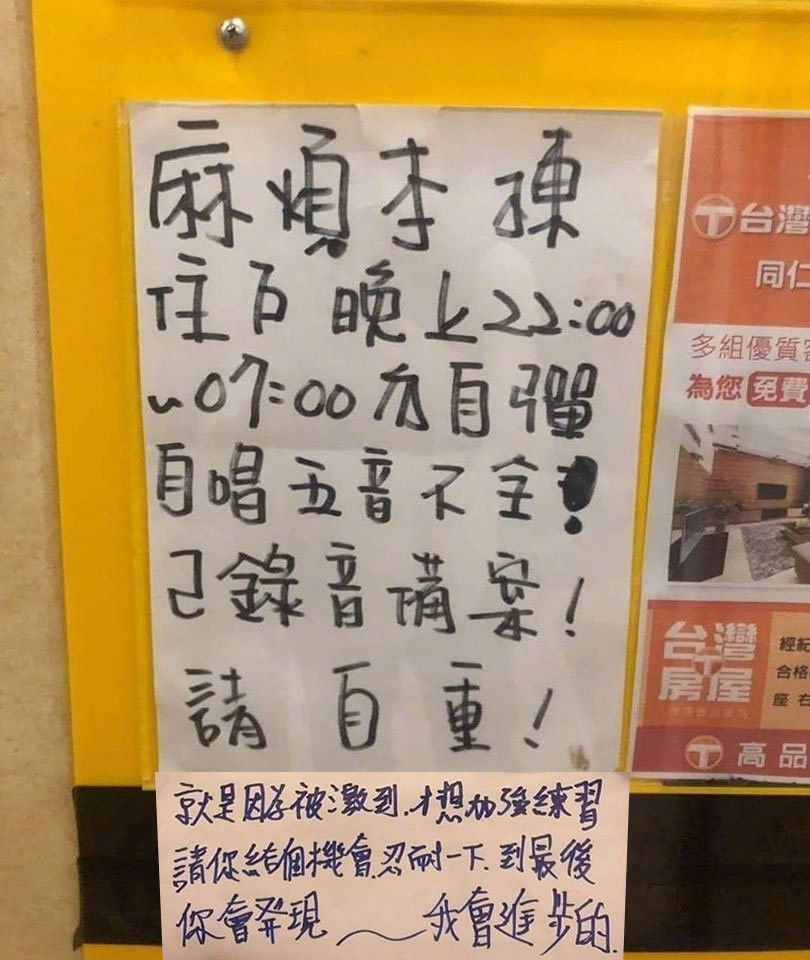 麻煩李棟
住戶晚上22:00
~07:00勿自彈
自唱五音不全!
已錄音備案!
請自重!
就是因為被激到.才想加強練習
請你給個機會.忍耐一下.到最後
你會發現～我會進步的.
台灣
同仁
多組優質客
為您免費
台灣
房屋
經紀
合格
座右
高品